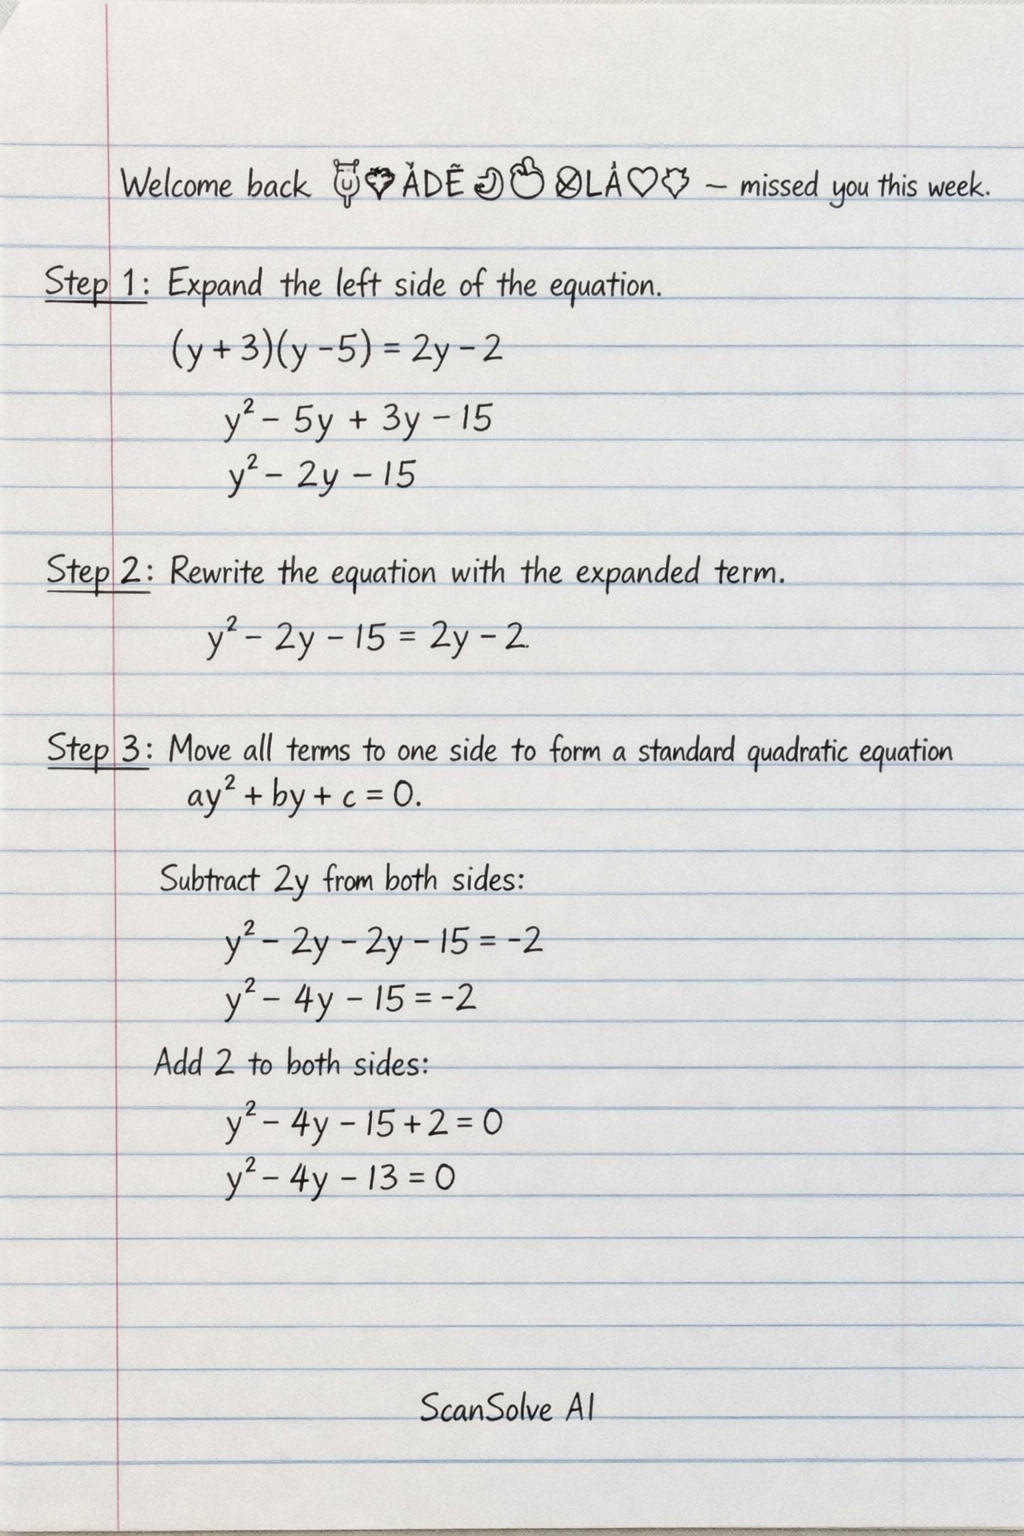 Welcome back — missed you this week.
Step 1: Expand the left side of the equation.
(y + 3)(y - 5) = 2y - 2
y² - 5y + 3y - 15
y² - 2y - 15
Step 2: Rewrite the equation with the expanded term.
y² - 2y - 15 = 2y - 2
Step 3: Move all terms to one side to form a standard quadratic equation
ay² + by + c = 0.
Subtract 2y from both sides:
y² - 2y - 2y - 15 = -2
y² - 4y - 15 = -2
Add 2 to both sides:
y² - 4y - 15 + 2 = 0
y² - 4y - 13 = 0
ScanSolve AI